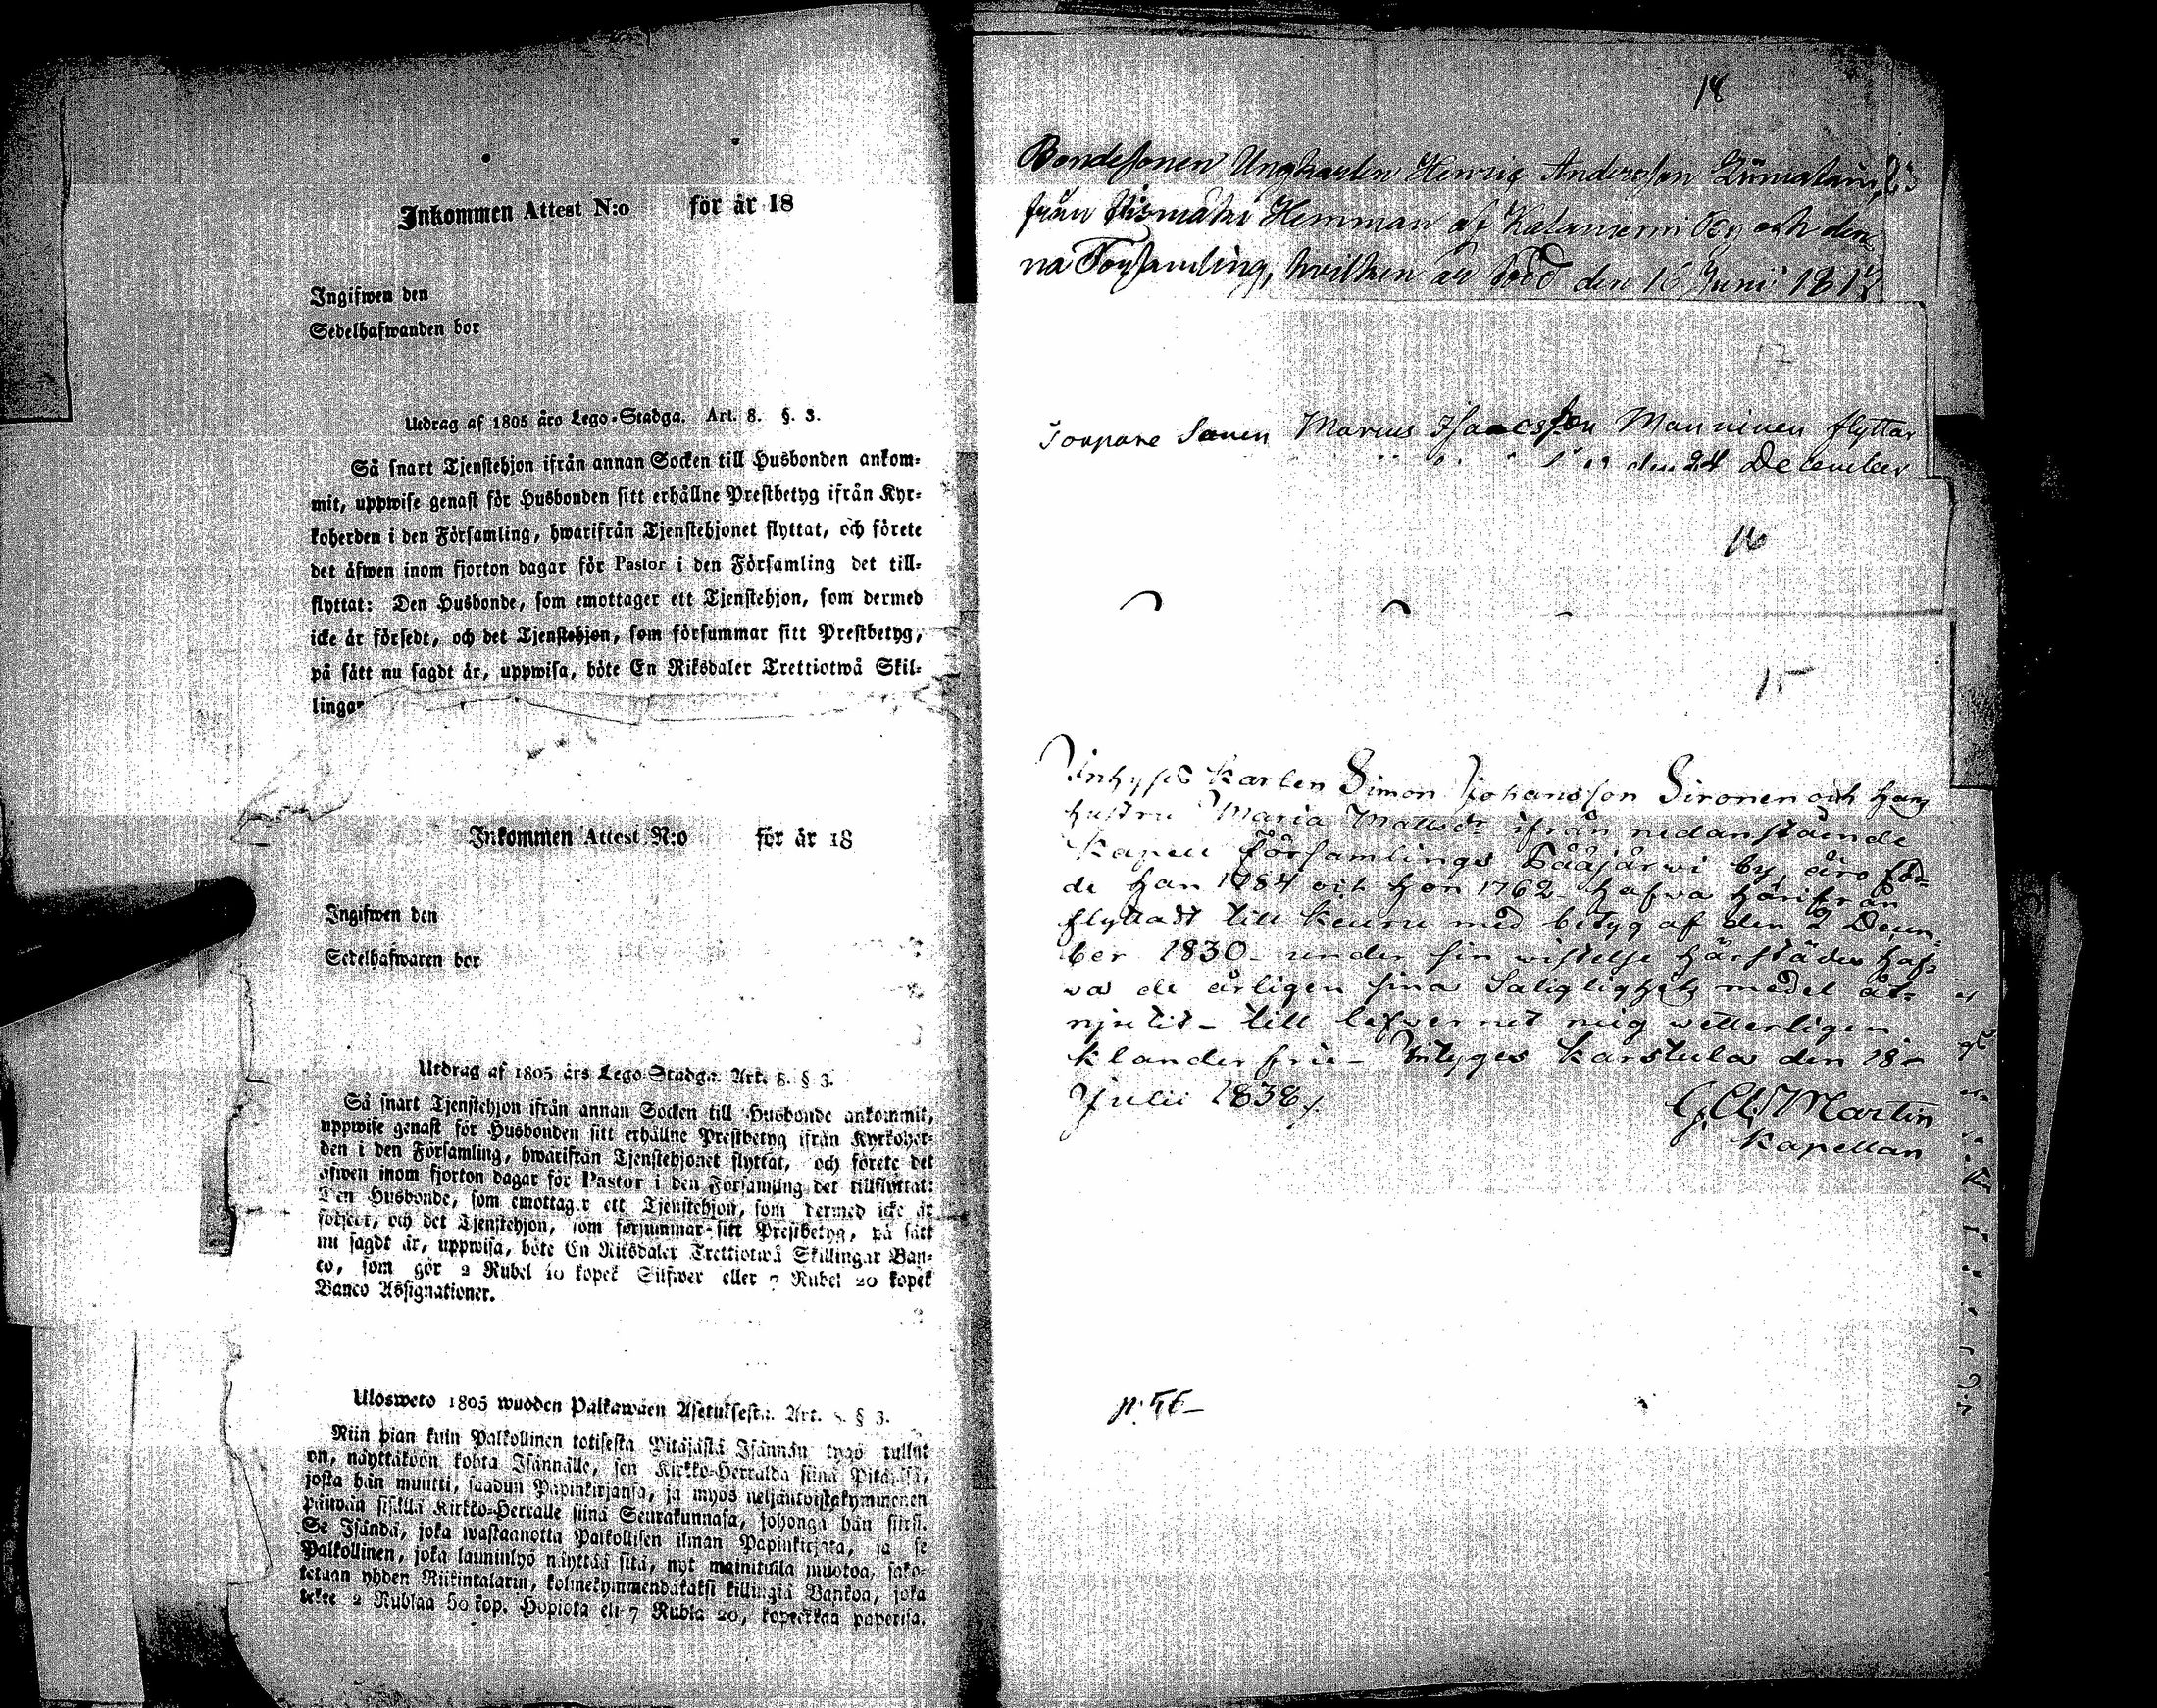 Inkommen Attest N:o för år 18
Ingifwen den
Sedelhafwanden bor
Utdrag af 1805 års Lego-Stadga. Art. 8. §. 3.
Så snart Tjenstehjon ifrån annan Socken till Husbonden ankom-
mit, uppwise genast för Husbonden sitt erhållne Prestbetyg ifrån Kyr-
koherden i den Församling, hwarifrån Tjenstehjonet flyttat, och förete
det äfwen inom fjorton dagar för Pastor i den Församling det till-
flyttat: Den Husbonde, som emottager ett Tjenstehjon, som dermed
icke är försedt, och det Tjenstehjon, som försummar sitt Prestbetyg,
på sätt nu sagdt är, uppwisa, böte En Riksdaler Trettiotwå Skil-
lingar
Inkommen Attest N:o för år 18
Ingifwen den
Sedelhafwaren bor
Utdrag af 1805 års Lego-Stadga. Art. 8. § 3.
Så snart Tjenstehjon ifrån annan Socken till Husbonde ankommit,
uppwise genast för Husbonden sitt erhållne Prestbetyg ifrån Kyrkoher-
den i den Församling, hwarifrån Tjenstehjonet flyttat, och förete det
äfwen inom fjorton dagar för Pastor i den Församling det tillflyttat:
Den Husbonde, som emottager ett Tjenstehjon, som dermed icke är
försedt, och det Tjenstehjon, som försummar sitt Prestbetyg, på sätt
nu sagdt är, uppwisa, böte En Riksdaler Trettiotwå Skillingar Ban-
co, som gör 2 Rubel 10 kopek Silfwer eller 7 Rubel 20 kopek
Banco Assignationer.
Ulosweto 1805 wuoden Palkawäen Asetuksesta. Art. 8. § 3.
Niin pian kuin Palkollinen toisesta Pitäjästä Isännän tygö tullut
on, näyttäköön kohta Isännälle, sen Kirkko-Herralda siinä Pitäjäsä,
josta hän muutti, saadun Papinkirjansa, ja myös neljäntoistakymmenen
päiwän sisällä Kirkko-Herralle siinä Seurakunnasa, johonga hän siirsi.
Se Isändä, joka wastaanotta Palkollisen ilman Papinkirjata, ja se
Palkollinen, joka laiminlyö näyttää sitä, nyt mainitulla muotoa, sako-
tetaan yhden Riikintalarin, kolmekymmendäkaksi killingiä Bankoa, joka
tekee 2 Rublaa 50 kop. Hopiota eli 7 Rubla 20, kopeckkaa paperisa.
18
Bondesonen Ungkarlen Henric Andersson
från Hemman af Kalaniemi By och den-
na Församling, hvilken är född den 16 Junii 181
17
Torpare Sonen Marcus Isaacsson Manninen flyttar
den 24 December
16
15
Inhyses Karlen Simon Johansson Sironen och Hans
hustru Maria Mattsdr ifrån nedanstående
Kapell Församlings Pääjärwi by, äro föd-
de Han 1784 och Hon 1762 - Hafwa Härifrån
flyttadt till Keuru med betyg af den 2 Decem-
ber 1830 - under sin wistelse Härstädes Haf-
va de årligen sina Saliglighets medel åt-
njutit - till lefwernet mig wetterligen
klanderfrie - Intygas Karstula den 18
Julii 1838.
G. A. Martin
Kapellan
p. 56 -